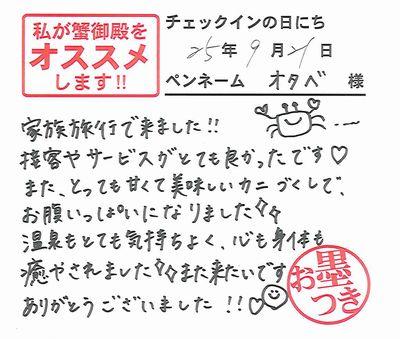 私が蟹御殿を
オススメ
します!!
チェックインの日にち
25年9月21日
ペンネーム オタベ 様
家族旅行で来ました!!
接客やサービスがとても良かったです♡
また、とっても甘くて美味しいカニづくしで、
お腹いっぱいになりました
温泉もとても気持ちよく、心も身体も
癒やされました また来たいです
ありがとうございました!!♡
お墨つき